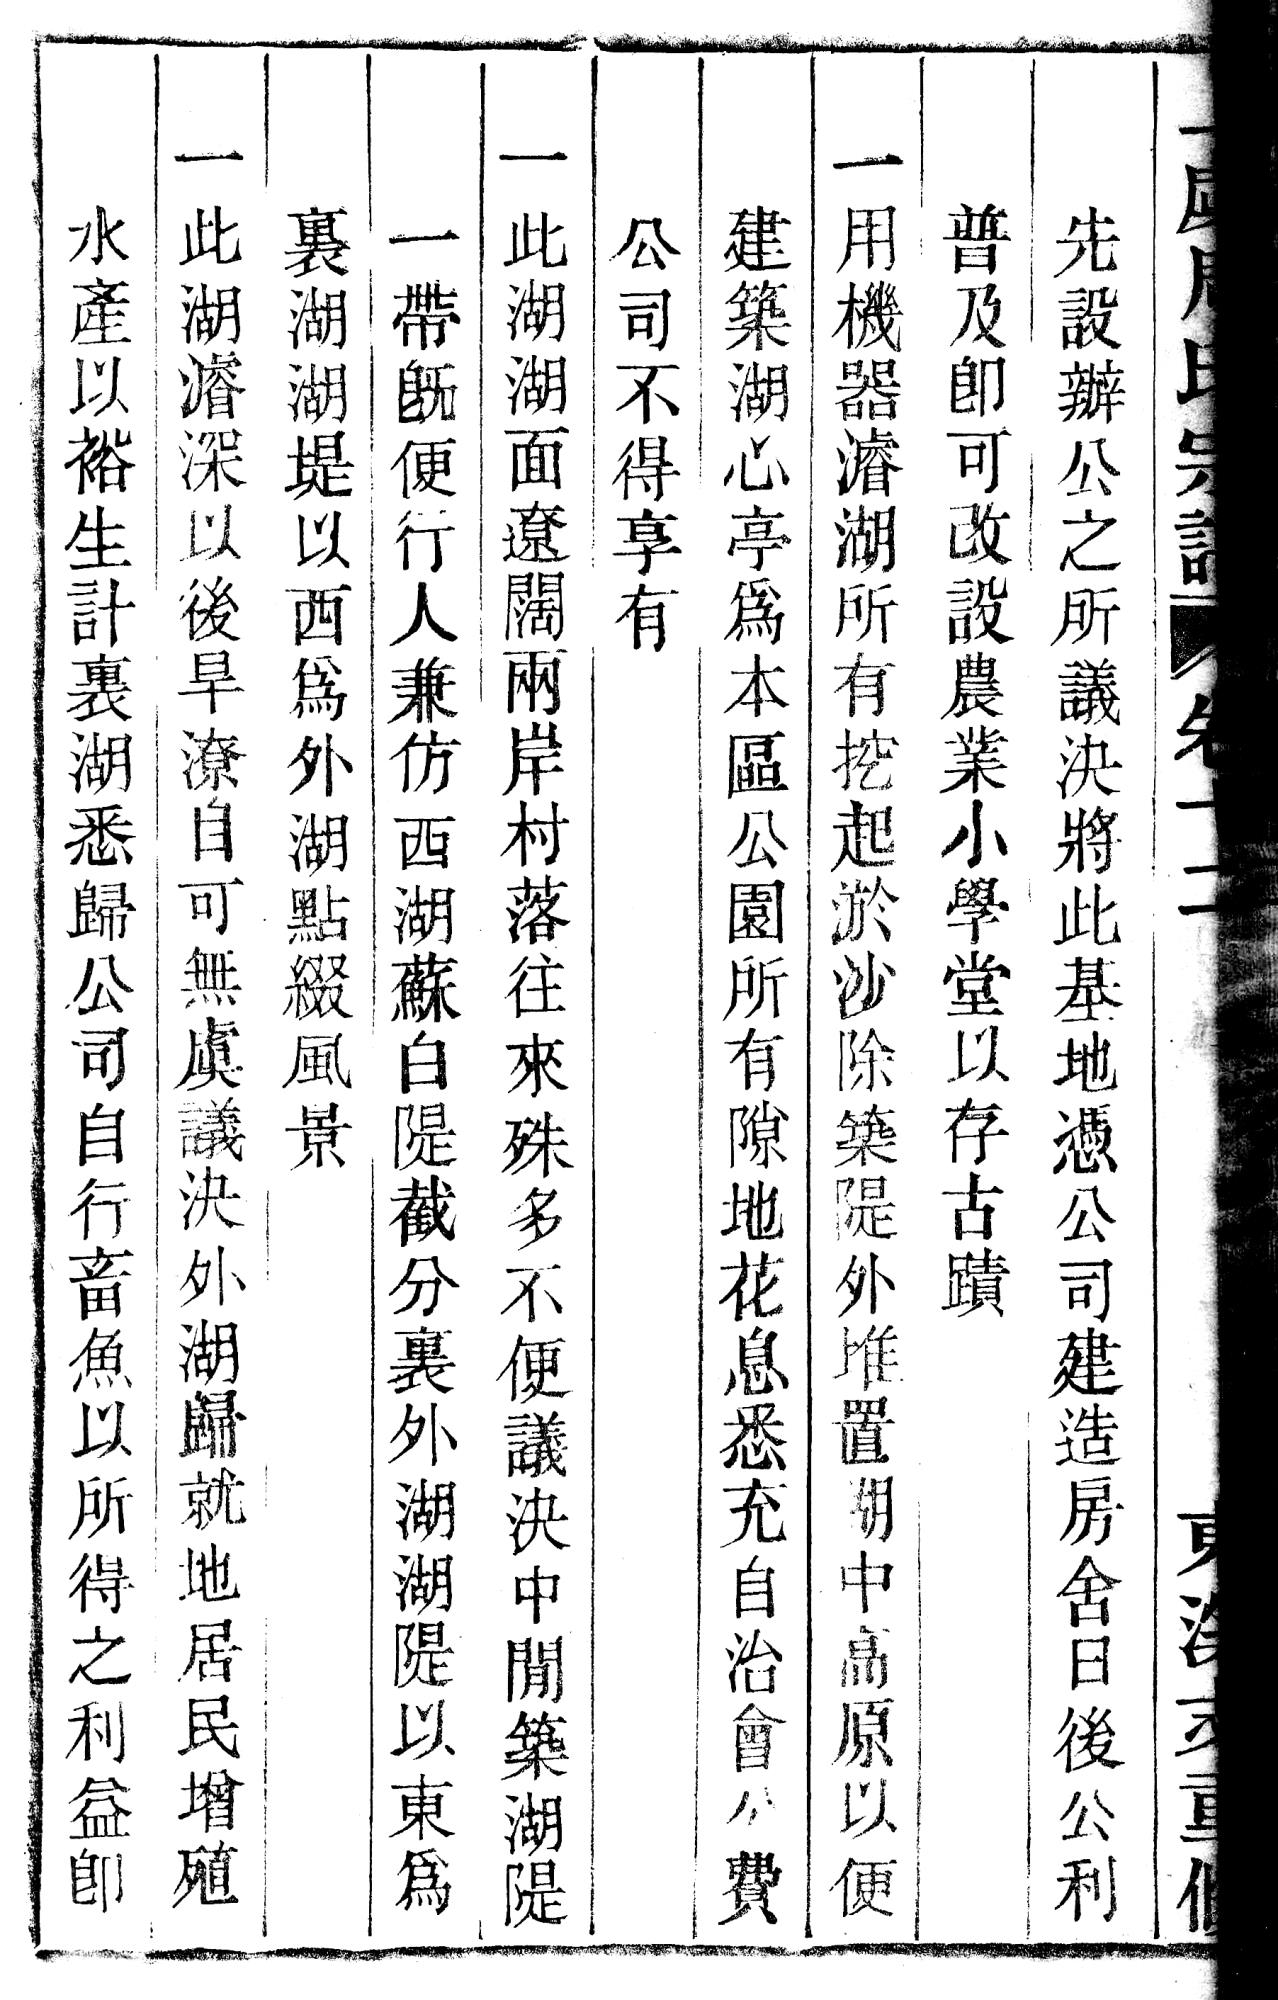 氏宗譜 卷十二
先設辦公之所議決將此基地憑公司建造房舍日後公利
普及卽可改設農業小學堂以存古蹟
一用機器濬湖所有挖起淤沙除築隄外堆置湖中高原以便
建築湖心亭爲本區公園所有隙地花息悉充自治會公費
公司不得享有
一此湖湖面遼闊兩岸村落往來殊多不便議決中閒築湖隄
一帶旣便行人兼仿西湖蘇白隄截分裏外湖湖隄以東爲
裏湖湖堤以西爲外湖點綴風景
一此湖濬深以後旱潦自可無虞議決外湖歸就地居民增殖
水產以裕生計裏湖悉歸公司自行畜魚以所得之利益卽